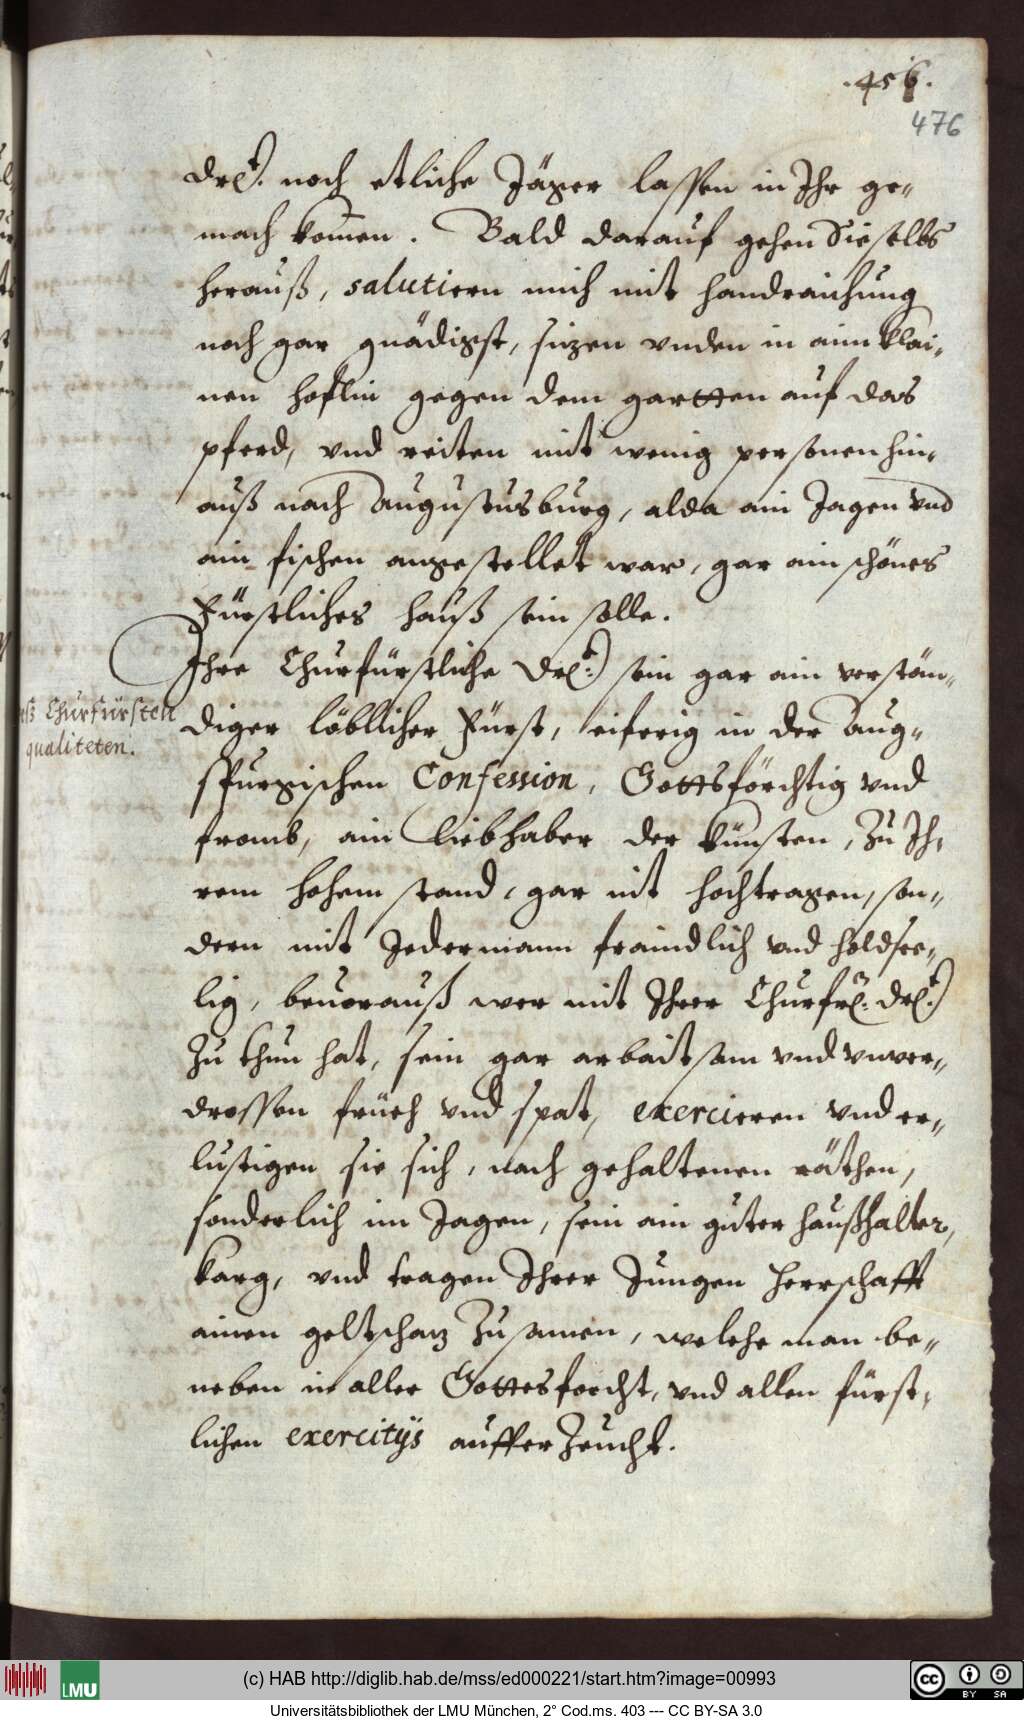 .456.
476
Drl: noch etliche Jäger lassen in Ihr ge-
mach komen. Bald darauf gehen Sie selbs
herauß, salutiern mich mit handraichung
noch gar gnädigst, sizen vnden in aim klai-
nen höflin gegen dem gartten auf das
pferd, vnd reiten mit wenig personen hin-
auß nach Augustusburg, alda ain Jagen vnd
ain fischen angestellet war, gar ain schönes
Fürstliches hauß sein solle.
Ihre Churfürstliche Drl: sein gar ain verstän-
eß Churfürsten
qualiteten.
diger löblicher Fürst, eiferig in der Aug-
spurgischen Confession, Gottsförchtig vnd
fromb, ain liebhaber der künsten, Zu Ih-
rem hohem stand, gar nit hochtragen, son-
dern mit Jedermann fraindlich vnd holdsee-
lig, beuorauß wer mit Ihrer Churfrl: Drl:
Zu thun hat, sein gar arbaitsam vnd vnver-
drossen früeh vnd spat, exercieren vnd er-
lustigen sie sich, nach gehaltenen räthen,
sonderlich im Jagen, sein ain guter haußhalter,
karg, vnd tragen Ihrer Jungen Herrschafft
ainen geltschaz Zusamen, welche man be-
neben in aller Gottesforcht, vnd allen fürst-
lichen exercitijs aufferZeucht.
LMU
(c) HAB http://diglib.hab.de/mss/ed000221/start.htm?image=00993
cc BY SA
Universitätsbibliothek der LMU München, 2° Cod.ms. 403 --- CC BY-SA 3.0